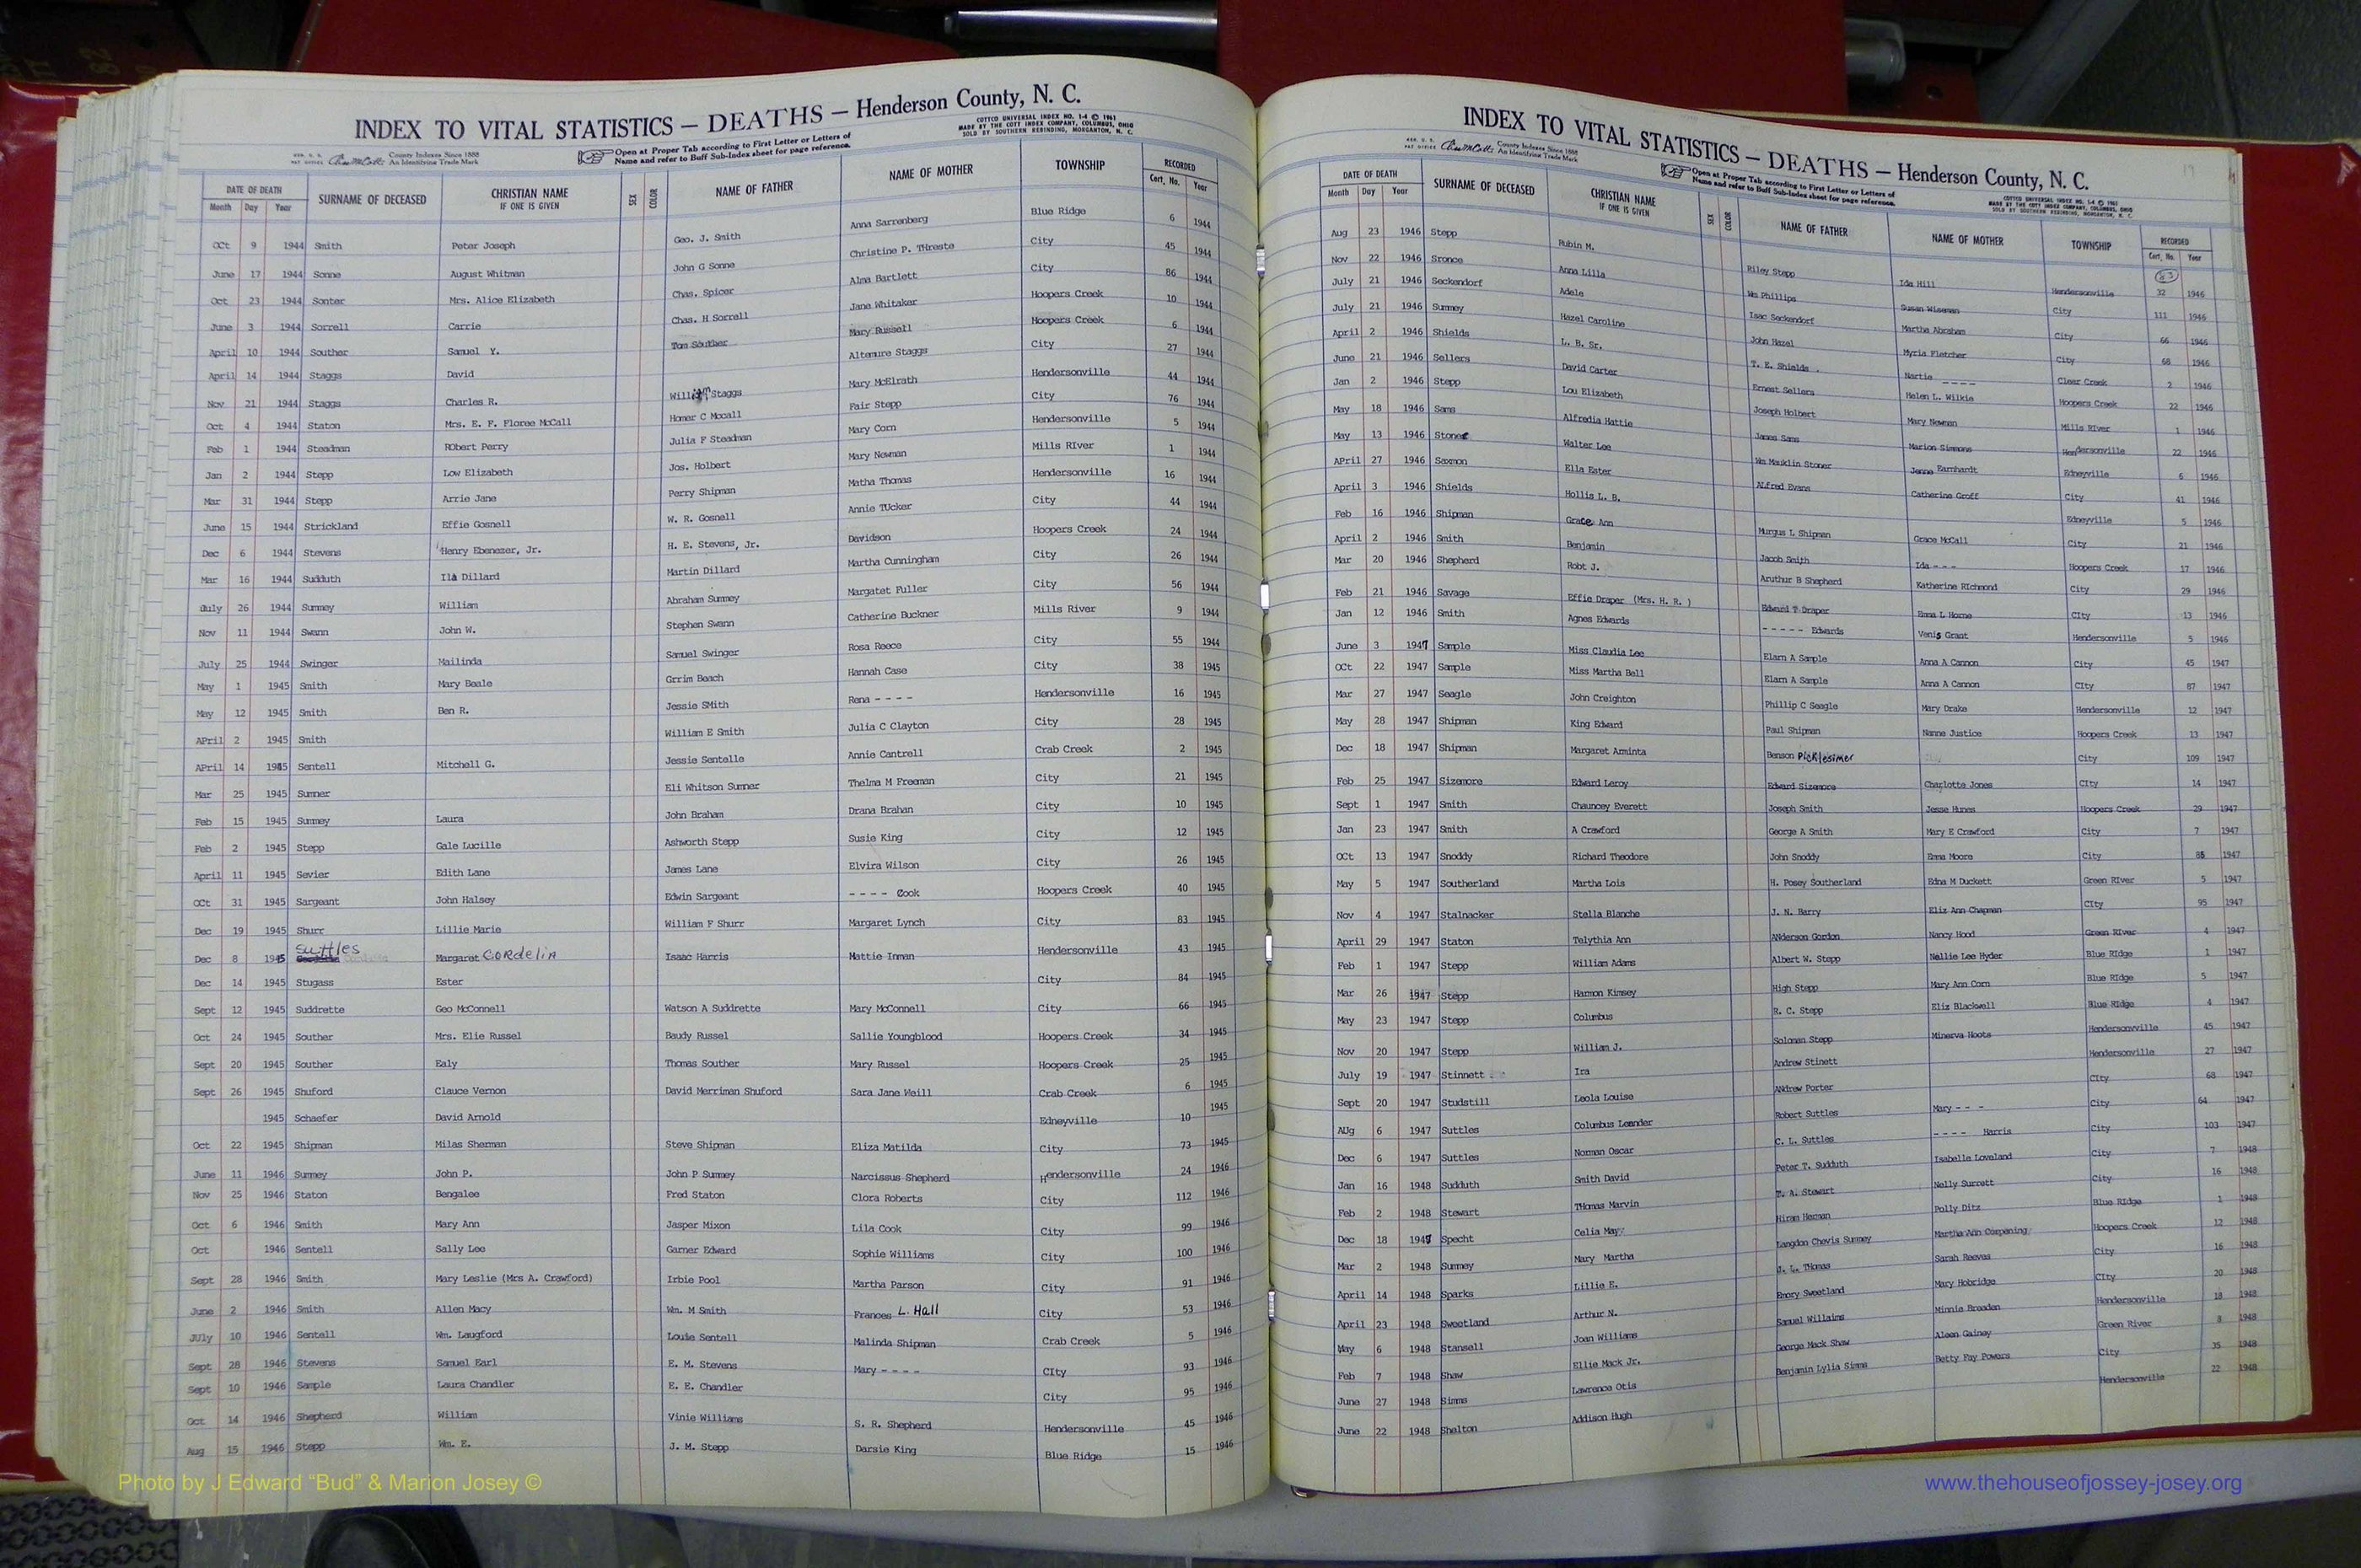 INDEX TO VITAL STATISTICS — DEATHS — Henderson County, N. C.
COTTCO UNIVERSAL INDEX NO. 1-4 © 1961
MADE BY THE COTT INDEX COMPANY, COLUMBUS, OHIO
SOLD BY SOUTHERN REBINDING, MORGANTON, N. C.
County Indexes Since 1888
An Identifying Trade Mark
Open at Proper Tab according to First Letter or Letters of
Name and refer to Buff Sub-Index sheet for page reference.
DATE OF DEATH SURNAME OF DECEASED CHRISTIAN NAME IF ONE IS GIVEN SEX COLOR NAME OF FATHER NAME OF MOTHER TOWNSHIP RECORDED
Month Day Year Cert. No. Year
OCt 9 1944 Smith Peter Joseph Geo. J. Smith Anna Sarrenberg Blue Ridge 6 1944
June 17 1944 Sonne August Whitman John G Sonne Christine P. THreste City 45 1944
Oct 23 1944 Sonter Mrs. Alice Elizabeth Chas. Spicer Alma Bartlett City 86 1944
June 3 1944 Sorrell Carrie Chas. H Sorrell Jane Whitaker Hoopers Creek 10 1944
April 10 1944 Souther Samuel Y. Tom Souther Mary Russell Hoopers Creek 6 1944
April 14 1944 Staggs David William Staggs Altemure Staggs City 27 1944
Nov 21 1944 Staggs Charles R. Mary McElrath Hendersonville 44 1944
Oct 4 1944 Staton Mrs. E. F. Floree McCall Homer C Mccall Fair Stepp City 76 1944
Feb 1 1944 Steadman RObert Perry Julia F Steadman Mary Corn Hendersonville 5 1944
Jan 2 1944 Stepp Low Elizabeth Jos. Holbert Mary Newman Mills RIver 1 1944
Mar 31 1944 Stepp Arrie Jane Perry Shipman Matha Thomas Hendersonville 16 1944
June 15 1944 Strickland Effie Gosnell W. R. Gosnell Annie TUcker City 44 1944
Dec 6 1944 Stevens Henry Ebenezer, Jr. H. E. Stevens, Jr. Davidson Hoopers Creek 24 1944
Mar 16 1944 Sudduth Ila Dillard Martin Dillard Martha Cunningham City 26 1944
July 26 1944 Summey William Abraham Summey Margatet Fuller City 56 1944
Nov 11 1944 Swann John W. Stephen Swann Catherine Buckner Mills River 9 1944
July 25 1944 Swinger Mailinda Samuel Swinger Rosa Reece City 55 1944
May 1 1945 Smith Mary Beale Grrim Beach Hannah Case City 38 1945
May 12 1945 Smith Ben R. Jessie SMith Rena - - - - Hendersonville 16 1945
APril 2 1945 Smith William E Smith Julia C Clayton City 28 1945
APril 14 1945 Sentell Mitchell G. Jessie Sentelle Annie Cantrell Crab Creek 2 1945
Mar 25 1945 Sumner Eli Whitson Sumner Thelma M Freeman City 21 1945
Feb 15 1945 Summey Laura John Braham Drana Brahan City 10 1945
Feb 2 1945 Stepp Gale Lucille Ashworth Stepp Susie King City 12 1945
April 11 1945 Sevier Edith Lane James Lane Elvira Wilson City 26 1945
OCt 31 1945 Sargeant John Halsey Edwin Sargeant - - - - Cook Hoopers Creek 40 1945
Dec 19 1945 Shurr Lillie Marie William F Shurr Margaret Lynch City 83 1945
Dec 8 1945 Suttles Margaret Cordelia Isaac Harris Mattie Inman Hendersonville 43 1945
Dec 14 1945 Stugass Ester City 84 1945
Sept 12 1945 Suddrette Geo McConnell Watson A Suddrette Mary McConnell City 66 1945
Oct 24 1945 Souther Mrs. Elie Russel Baudy Russel Sallie Youngblood Hoopers Creek 34 1945
Sept 20 1945 Souther Ealy Thomas Souther Mary Russel Hoopers Creek 25 1945
Sept 26 1945 Shuford Clauce Vernon David Merriman Shuford Sara Jane Weill Crab Creek 6 1945
1945 Schaefer David Arnold Edneyville 10 1945
Oct 22 1945 Shipman Milas Sherman Steve Shipman Eliza Matilda City 73 1945
June 11 1946 Summey John P. John P Summey Narcissus Shepherd Hendersonville 24 1946
Nov 25 1946 Staton Bengalee Fred Staton Clora Roberts City 112 1946
Oct 6 1946 Smith Mary Ann Jasper Mixon Lila Cook City 99 1946
Oct 1946 Sentell Sally Lee Garner Edward Sophie Williams City 100 1946
Sept 28 1946 Smith Mary Leslie (Mrs A. Crawford) Irbie Pool Martha Parson City 91 1946
June 2 1946 Smith Allen Macy Wm. M Smith Frances L. Hall City 53 1946
JUly 10 1946 Sentell Wm. Laugford Louie Sentell Malinda Shipman Crab Creek 5 1946
Sept 28 1946 Stevens Samuel Earl E. M. Stevens Mary - - - - CIty 93 1946
Sept 10 1946 Sample Laura Chandler E. E. Chandler City 95 1946
Oct 14 1946 Shepherd William Vinie Williams S. R. Shepherd Hendersonville 45 1946
Aug 15 1946 Stepp Wm. E. J. M. Stepp Darsie King Blue Ridge 15 1946
INDEX TO VITAL STATISTICS — DEATHS — Henderson County, N. C.
County Indexes Since 1888
An Identifying Trade Mark
Open at Proper Tab according to First Letter or Letters of
Name and refer to Buff Sub-Index sheet for page reference.
COTTCO UNIVERSAL INDEX NO. 1-4 © 1961
MADE BY THE COTT INDEX COMPANY, COLUMBUS, OHIO
SOLD BY SOUTHERN REBINDING, MORGANTON, N. C.
DATE OF DEATH SURNAME OF DECEASED CHRISTIAN NAME IF ONE IS GIVEN SEX COLOR NAME OF FATHER NAME OF MOTHER TOWNSHIP RECORDED
Month Day Year Cert. No. Year
Aug 23 1946 Stepp Rubin M. Riley Stepp Ida Hill Hendersonville 32 1946
Nov 22 1946 Sronce Anna Lilla Wm Phillips Susan Wiseman City 111 1946
July 21 1946 Seckendorf Adele Isac Seckendorf Martha Abraham City 66 1946
July 21 1946 Summey Hazel Caroline John Hazel Myria Fletcher City 68 1946
April 2 1946 Shields L. B. Sr. T. E. Shields Nartie - - - - Clear Creek 2 1946
June 21 1946 Sellers David Carter Ernest Sellers Helen L. Wilkie Hoopers Creek 22 1946
Jan 2 1946 Stepp Lou Elizabeth Joseph Holbert Mary Newman Mills RIver 1 1946
May 18 1946 Sams Alfredia Hattie James Sams Marion Simmons Hendersonville 22 1946
May 13 1946 Stoner Walter Lee Wm Mauklin Stoner Jenne Earnhardt Edneyville 6 1946
APril 27 1946 Saxmon Ella Ester Alfred Evans Catherine Groff City 41 1946
April 3 1946 Shields Hollis L. B. Edneyville 5 1946
Feb 16 1946 Shipman Grace Ann Murgus L Shipman Grace McCall City 21 1946
April 2 1946 Smith Benjamin Jacob Smith Ida - - - Hoopers Creek 17 1946
Mar 20 1946 Shepherd Robt J. Aruthur B Shepherd Katherine RIchmond City 29 1946
Feb 21 1946 Savage Effie Draper (Mrs. H. R. ) Edward T Draper Emma L Horne CIty 13 1946
Jan 12 1946 Smith Agnes Edwards - - - - - Edwards Venis Grant Hendersonville 5 1946
June 3 1947 Sample Miss Claudia Lee Elarn A Sample Anna A Cannon City 45 1947
OCt 22 1947 Sample Miss Martha Bell Elarn A Sample Anna A Cannon CIty 87 1947
Mar 27 1947 Seagle John Creighton Phillip C Seagle Mary Drake Hendersonville 12 1947
May 28 1947 Shipman King Edward Paul Shipman Nanne Justice Hoopers Creek 13 1947
Dec 18 1947 Shipman Margaret Arminta Benson Picklesimer City 109 1947
Feb 25 1947 Sizemore Edward Leroy Edward Sizemore Charlotte Jones CIty 14 1947
Sept 1 1947 Smith Chauncey Everett Joseph Smith Jesse Hunes Hoopers Creek 29 1947
Jan 23 1947 Smith A Crawford George A Smith Mary E Crawford City 7 1947
OCt 13 1947 Snoddy Richard Theodore John Snoddy Emma Moore City 85 1947
May 5 1947 Southerland Martha Lois H. Posey Southerland Edna M Duckett Green RIver 5 1947
Nov 4 1947 Stalnacker Stella Blanche J. N. Barry Eliz Ann Chapman CIty 95 1947
April 29 1947 Staton Telythia Ann ANderson Gordon Nancy Hood Green RIver 4 1947
Feb 1 1947 Stepp William Adams Albert W. Stepp Nellie Lee Hyder Blue RIdge 1 1947
Mar 26 1947 Stepp Harmon Kimsey High Stepp Mary Ann Corn Blue RIdge 5 1947
May 23 1947 Stepp Columbus R. C. Stepp Eliz Blackwell Blue RIdge 4 1947
Nov 20 1947 Stepp William J. Soloman Stepp Minerva Hoots Hendersonvville 45 1947
July 19 1947 Stinnett Ira Andrew Stinett Hendersonville 27 1947
Sept 20 1947 Studstill Leola Louise ANdrew Porter CIty 68 1947
AUg 6 1947 Suttles Columbus Leander Robert Suttles Mary - - - City 64 1947
Dec 6 1947 Suttles Norman Oscar C. L. Suttles - - - - Harris City 103 1947
Jan 16 1948 Sudduth Smith David Peter T. Sudduth Isabelle Loveland City 7 1948
Feb 2 1948 Stewart THomas Marvin T. A. Stewart Nelly Surrett City 16 1948
Dec 18 1947 Specht Celia May Hiram Herman Polly Ditz Blue RIdge 1 1948
Mar 2 1948 Summey Mary Martha Langdon Chevis Summey Martha Ann Corpening Hoopers Creek 12 1948
April 14 1948 Sparks Lillie E. J. L. THomas Sarah Reeves City 16 1948
April 23 1948 Sweetland Arthur N. Emory Sweetland Mary Hobridge CIty 20 1948
May 6 1948 Stansell Joan Williams Samuel Willaims Minnie Breeden Hendersonville 18 1948
Feb 7 1948 Shaw Ellie Mack Jr. George Mack Shaw Aleen Gainey Green River 8 1948
June 27 1948 Simms Lawrence Otis Benjamin Lylia Simms Betty Fay Powers City 35 1948
June 22 1948 Shelton Addison Hugh Hendersonville 22 1948
Photo by J Edward “Bud” & Marion Josey ©
www.thehouseofjossey-josey.org